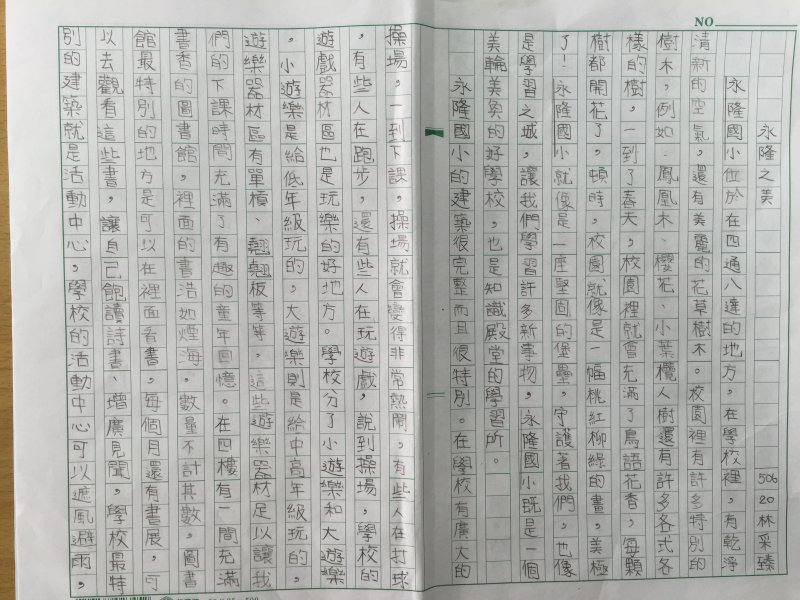 NO.
永隆之美
506 20 林采臻
永隆國小位於在四通八達的地方，在學校裡，有乾淨
清新的空氣，還有美麗的花草樹木。校園裡有許多特別的
樹木，例如：鳳凰木、櫻花、小葉欖人樹還有許多各式各
樣的樹，一到了春天，校園裡就會充滿了鳥語花香，每顆
樹都開花了，頓時，校園就像是一幅桃紅柳綠的畫，美極
了！永隆國小就像是一座堅固的堡壘，守護著我們，也像
是學習之城，讓我們學習許多新事物，永隆國小既是一個
美輪美奐的好學校，也是知識殿堂的學習所。
永隆國小的建築很完整而且很特別。在學校有廣大的
操場，一到下課，操場就會變得非常熱鬧，有些人在打球
，有些人在跑步，還有些人在玩遊戲，說到操場，學校的
遊戲器材區也是玩樂的好地方。學校分了小遊樂和大遊樂
，小遊樂是給低年級玩的，大遊樂則是給中高年級玩的，
遊樂器材區有單槓、翹翹板等等，這些遊樂器材足以讓我
們的下課時間充滿了有趣的童年回憶。在四樓有一間充滿
書香的圖書館，裡面的書浩如煙海，數量不計其數，圖書
館最特別的地方是可以在裡面看書，每個月還有書展，可
以去觀看這些書，讓自己飽讀詩書、增廣見聞，學校最特
別的建築就是活動中心，學校的活動中心可以遮風避雨，